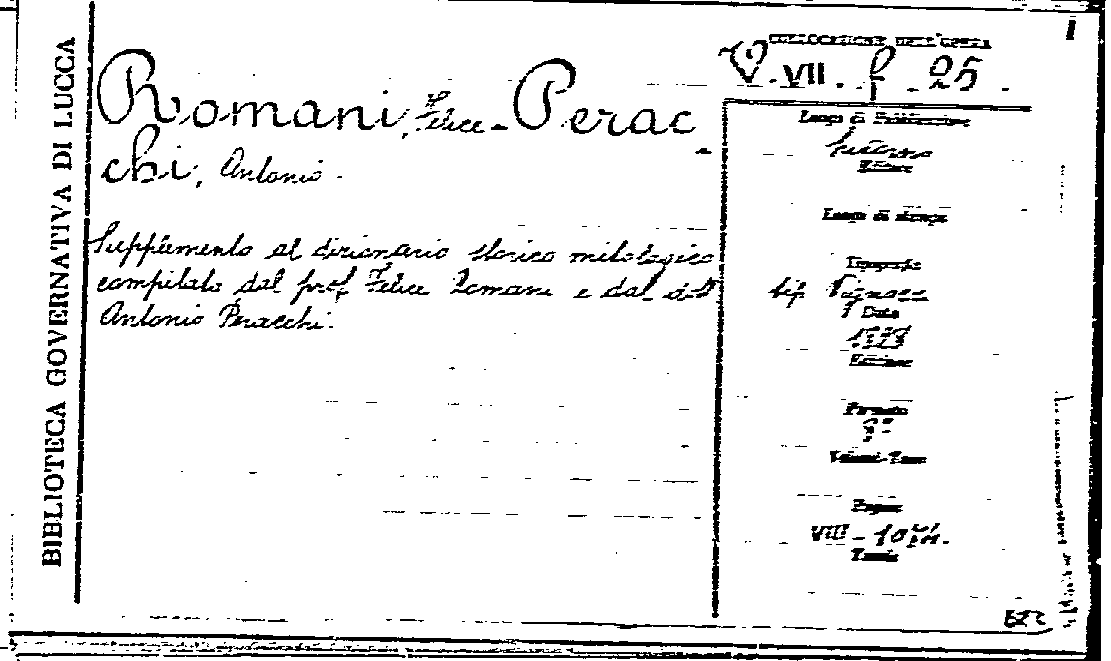 BIBLIOTECA GOVERNATIVA DI LUCCA
Romani, Felice - Perac
chi, Antonio -
Supplemento al dizionario storico mitologico
compilato dal prof Felice Romani e dal dott
Antonio Peracchi.
COLLOCAZIONE DELL'OPERA
V. VII. f. 25.
Luogo di Pubblicazione
Editore
Luogo di stampa
Tipografia
tip.
Data
Edizione
Formato
8°
Volumi-Tomi
Pagine
VIII -
Tavole